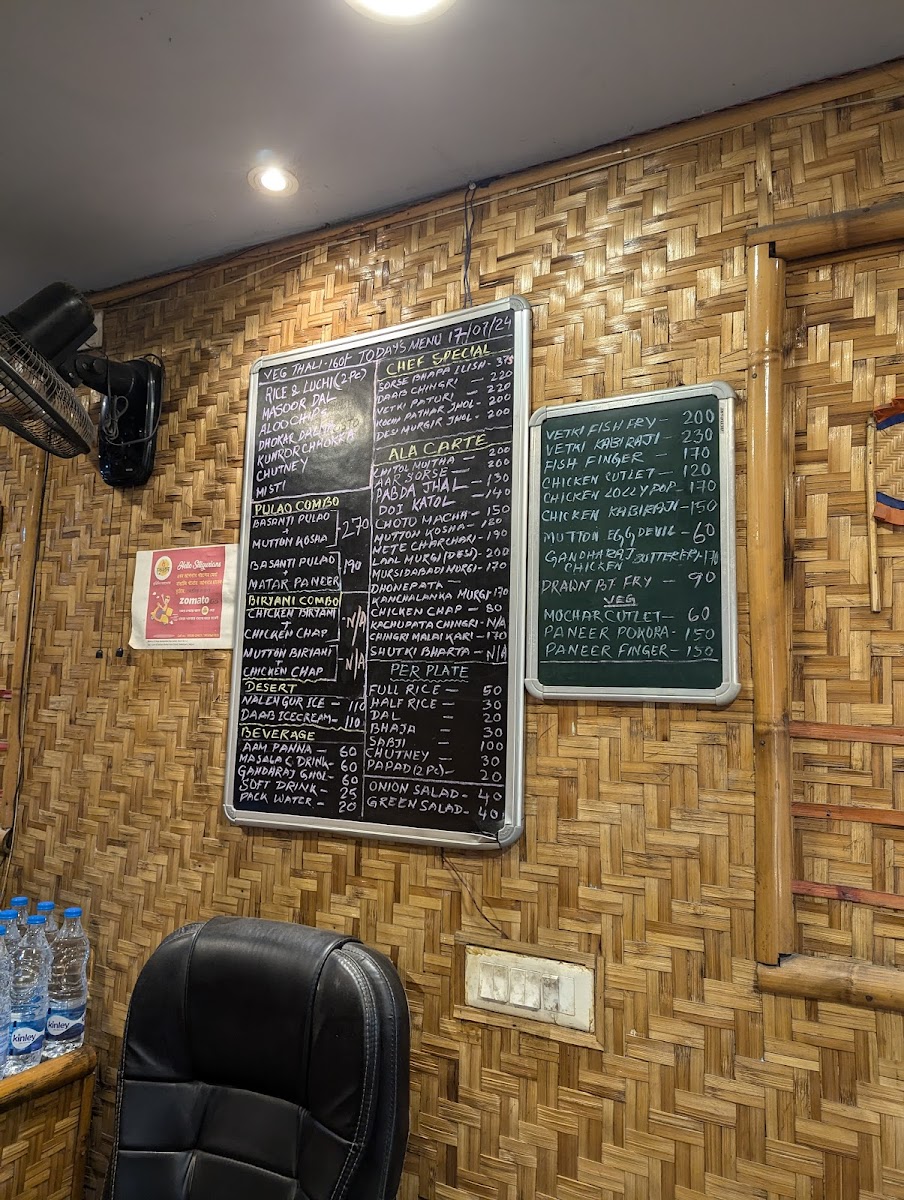 VEG THALI-160/- TODAYS MENU 17/07/24
RICE & LUCHI(2Pc)
MASOOR DAL
ALOO CHIPS
DHOKAR DALNA
KUMROR CHHOKKA
CHUTNEY
MISTI
PULAO COMBO
BASANTI PULAO
MUTTON KOSHA
-270
BASANTI PULAO
MATAR PANEER
190
BIRYANI COMBO
CHICKEN BIRYANI
+
CHICKEN CHAP
N/A
MUTTON BIRIANI
+
CHICKEN CHAP
N/A
DESERT
NALEN GUR ICE - 110
DAAB ICECREAM - 110
BEVERAGE
AAM PANNA - 60
MASALA C DRINK - 60
GANDHARAJ GHOL - 60
SOFT DRINK - 25
PACK WATER - 20
CHEF SPECIAL
SORSE BHAPA ILISH - 375
DAAB CHINGRI - 220
VETKI PATURI - 220
KOCHI PATHAR JHOL - 200
DESI MURGIR JHOL - 200
ALA CARTE
CHITOL MUITHA - 200
AAR SORSE - 200
PABDA JHAL - 130
DOI KATOL - 140
CHOTO MACHA - 150
MUTTON KOSHA - 180
METE CHARCHARI - 190
LAAL MURGI (DESI) - 200
MURSIDABADI MURGI - 170
DHONE PATA -
KANCHALANKA MURGI 170
CHICKEN CHAP - 80
KACHUPATA CHINGRI - N/A
CHINGRI MALAI KARI - 170
SHUTKI BHARTA - N/A
PER PLATE
FULL RICE - 50
HALF RICE - 30
DAL - 20
BHAJA - 30
SABJI - 100
CHUTNEY - 30
PAPAD(2Pc) - 20
ONION SALAD - 40
GREEN SALAD - 40
VETKI FISH FRY - 200
VETKI KABIRAJI - 230
FISH FINGER - 170
CHICKEN CUTLET - 120
CHICKEN LOLLYPOP - 170
CHICKEN KABIRAJI - 150
MUTTON EGG DEVIL - 60
GANDHARAJ
CHICKEN BUTTER FRY - 170
PRAWN BT FRY - 90
VEG
MOCHAR CUTLET - 60
PANEER POKORA - 150
PANEER FINGER - 150
Hello Siligurians
zomato
kinley
kinley